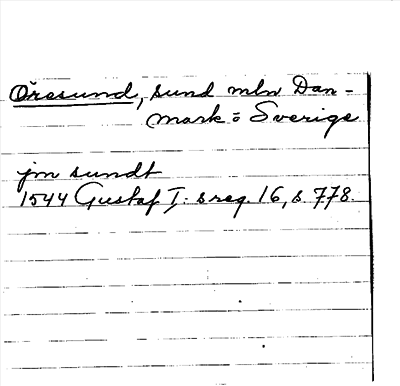 Öresund, sund mln Dan-
mark o Sverige
jm sundt
1544 Gustaf I: s reg. 16, s. 778.